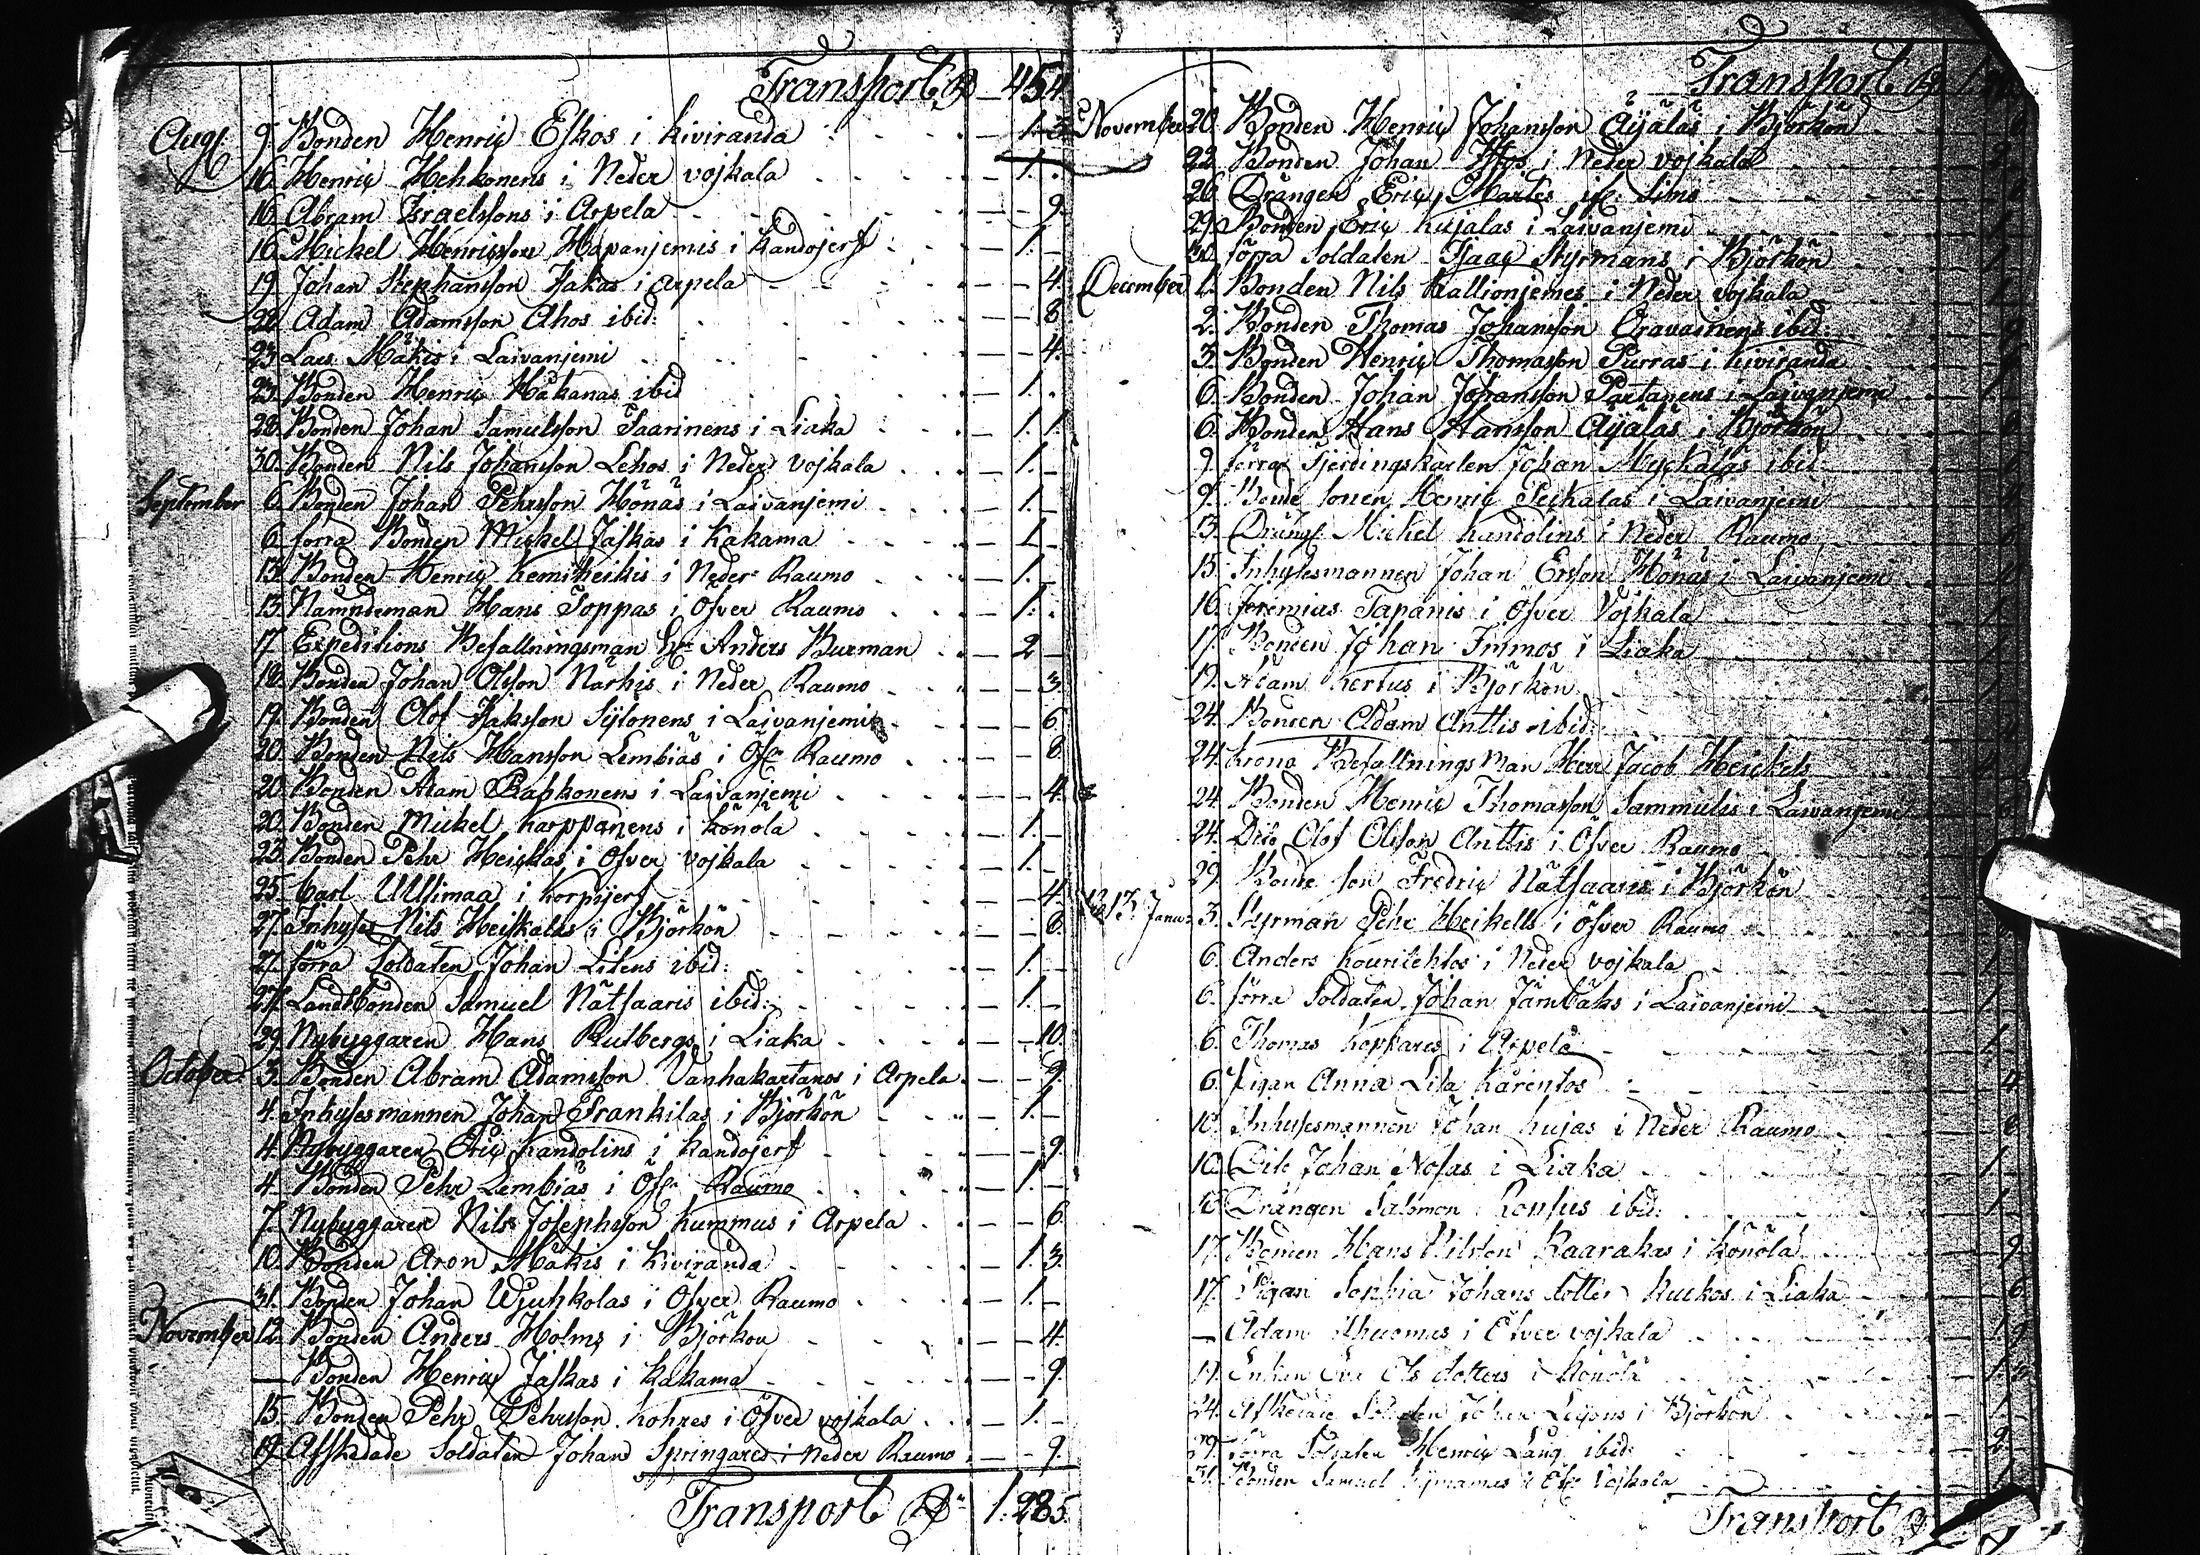 Transport 454
Aug. 9. Bonden Henric Eskos i Kiviranda 1. 3.
16. Henric Hehkonens i Neder vojkala 1.
16. Abram Israelssons i Arpela 9.
16. Mickel Henricsson Hapanjemis i Kandojerf 1.
19. Johan Stephansson Isakas i Arpela 4.
22. Adam Adamsson Ahos ibid: 8.
23. Lars Mäkis i Laivanjemi 4.
23. Bonden Henric Håkanas ibid 1.
28. Bonden Johan Samulsson Saarinens i Liaka 1. 1.
30. Bonden Nils Johansson Lehos i Neder Vojkala 1.
September 6. Bonden Johan Pehrsson Hönäs i Laivanjemi 1.
6. förra Bonden Mickel Jaskas i Kakama 1.
13. Bonden Henric Kemikeikis i Neder Raumo 1.
13. Nämndeman Hans Toppas i Öfver Raumo 1.
17. Expeditions Befallningsman Hr Anders Burman 2
18. Bonden Johan Olsson Narhis i Neder Raumo 3.
19. Bonden Olof Isaksson Sÿlonens i Laivanjemi 6.
20. Bonden Nils Hansson Lembiäs i Öfr Raumo 8.
20. Bonden Adam Rahkonens i Laivanjemi 4.
20. Bonden Mickel Karppanens i Könölä 1.
23. Bonden Pehr Heickas i Öfver vojkala 1.
25. Carl Ullsimaa i Korpijerf 4.
27. Inhyses Nils Heiskalas i Björkön 6.
27. förra Soldaten Johan Litens ibid: 1.
27. Landtbonden Samuel Nätsaaris ibid: 1.
29. Nybyggaren Hans Rutbergs i Liaka 10.
October 3. Bonden Abram Adamsson Vanhakartanos i Arpela 9.
4. Inhysesmannen Johan Frankilas i Björkön 1.
4. Nybyggaren Eric Kandolins i Kandojerf 9.
4. Bonden Pehr Lembiäs i Öfr Raumo 1.
7. Nybyggaren Nils Josephsson Kummus i Arpela 6.
10. Bonden Aron Mäkis i Kiviranda 1. 3.
31. Bonden Johan Wjuhkolas i Öfver Raumo 1.
November 12. Bonden Anders Holms i Björkön 4.
— Bonden Henric Jaskas i Kakama 9.
15. Bonden Pehr Pehrsson Kohres i Öfver vojkala 1.
19. Afskedade Soldaten Johan Springares i Neder Raumo 9.
Transport 1. 285.
Transport
November 20. Bonden Henric Johansson Äÿäläs i Björkön
22. Bonden Johan Yfos i Neder vojkala
26. Drängen Eric Martes Simo
29. Bonden Eric Kujalas i Laivanjemi
30. förra Soldaten Isaac Styrmans i Björkön
December 1. Bonden Nils Kallionjemes i Neder vojkala
2. Bonden Thomas Johansson Oravainens ibid:
3. Bonden Henric Thomasson Purras i Kiviranda
6. Bonden Johan Johansson Partanens i Laivanjemi
6. Bonden Hans Hansson Äÿäläs i Björkön
9. förra Fjerdingskarlen Johan Myckaläs ibid:
9. Bonde sonen Henric Peckalas i Laivanjemi
13. Dräng Mickel Kandolins i Neder Raumo
15. Inhysesmannen Johan Ersson Hönäs i Laivanjemi
16. Jeremias Tapanis i Öfver Vojkala
17. Bonden Johan Immos i Liaka
19. Adam Kertus i Björkön
24. Bonden Adam Anttis ibid:
24. Krono Befallnings Man Herr Jacob Heickels
24. Bonden Henric Thomasson Sammulis i Laivanjemi
24. Dito Olof Olsson Anttis i Öfver Raumo
29. Bonde son Fredric Nätsaaris i Björkön
Janu: 3. Styrman Pehr Heikells i Öfver Raumo
6. Anders Kourilehtos i Neder vojkala 1.
6. förra Soldaten Johan Jämbäks i Laivanjemi 1.
6. Thomas Koppares i Arpela 1.
6. Pigan Anna Lisa Kärentos 4
10. Inhysesmannen Johan Kujas i Neder Raumo 8
10. Dito Johan Nosas i Liaka 1.
Drängen Salomon Ronsus ibid: 1.
17. Bonden Hans Nilsson Kaarakas i Könölä 9
17. Pigan Sophia Johans dotter Kuckos i Liaka 6
— Adam Ahuomas i Öfver vojkala
19. Enkan Eva Ols dotters i Könölä
24. Afskedade Soldaten Johan Lejons i Björkön 1
förra Soldaten Henric Lång ibid: 2
31. Bonden Samuel i Öfr Vojkala 1
Transport